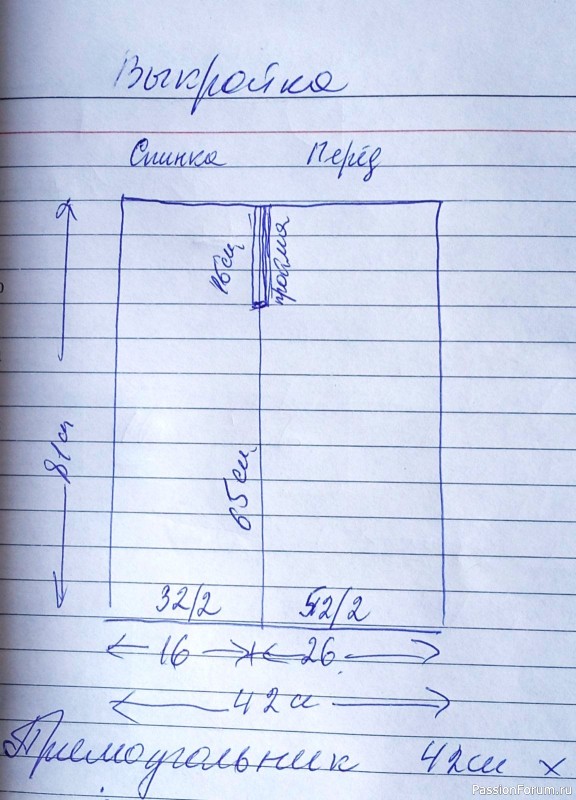 Выкройка
Спинка Перёд
16см
пройма
81см
65см
32/2 52/2
16 26
42см
Прямоугольник 42см х
PassionForum.ru